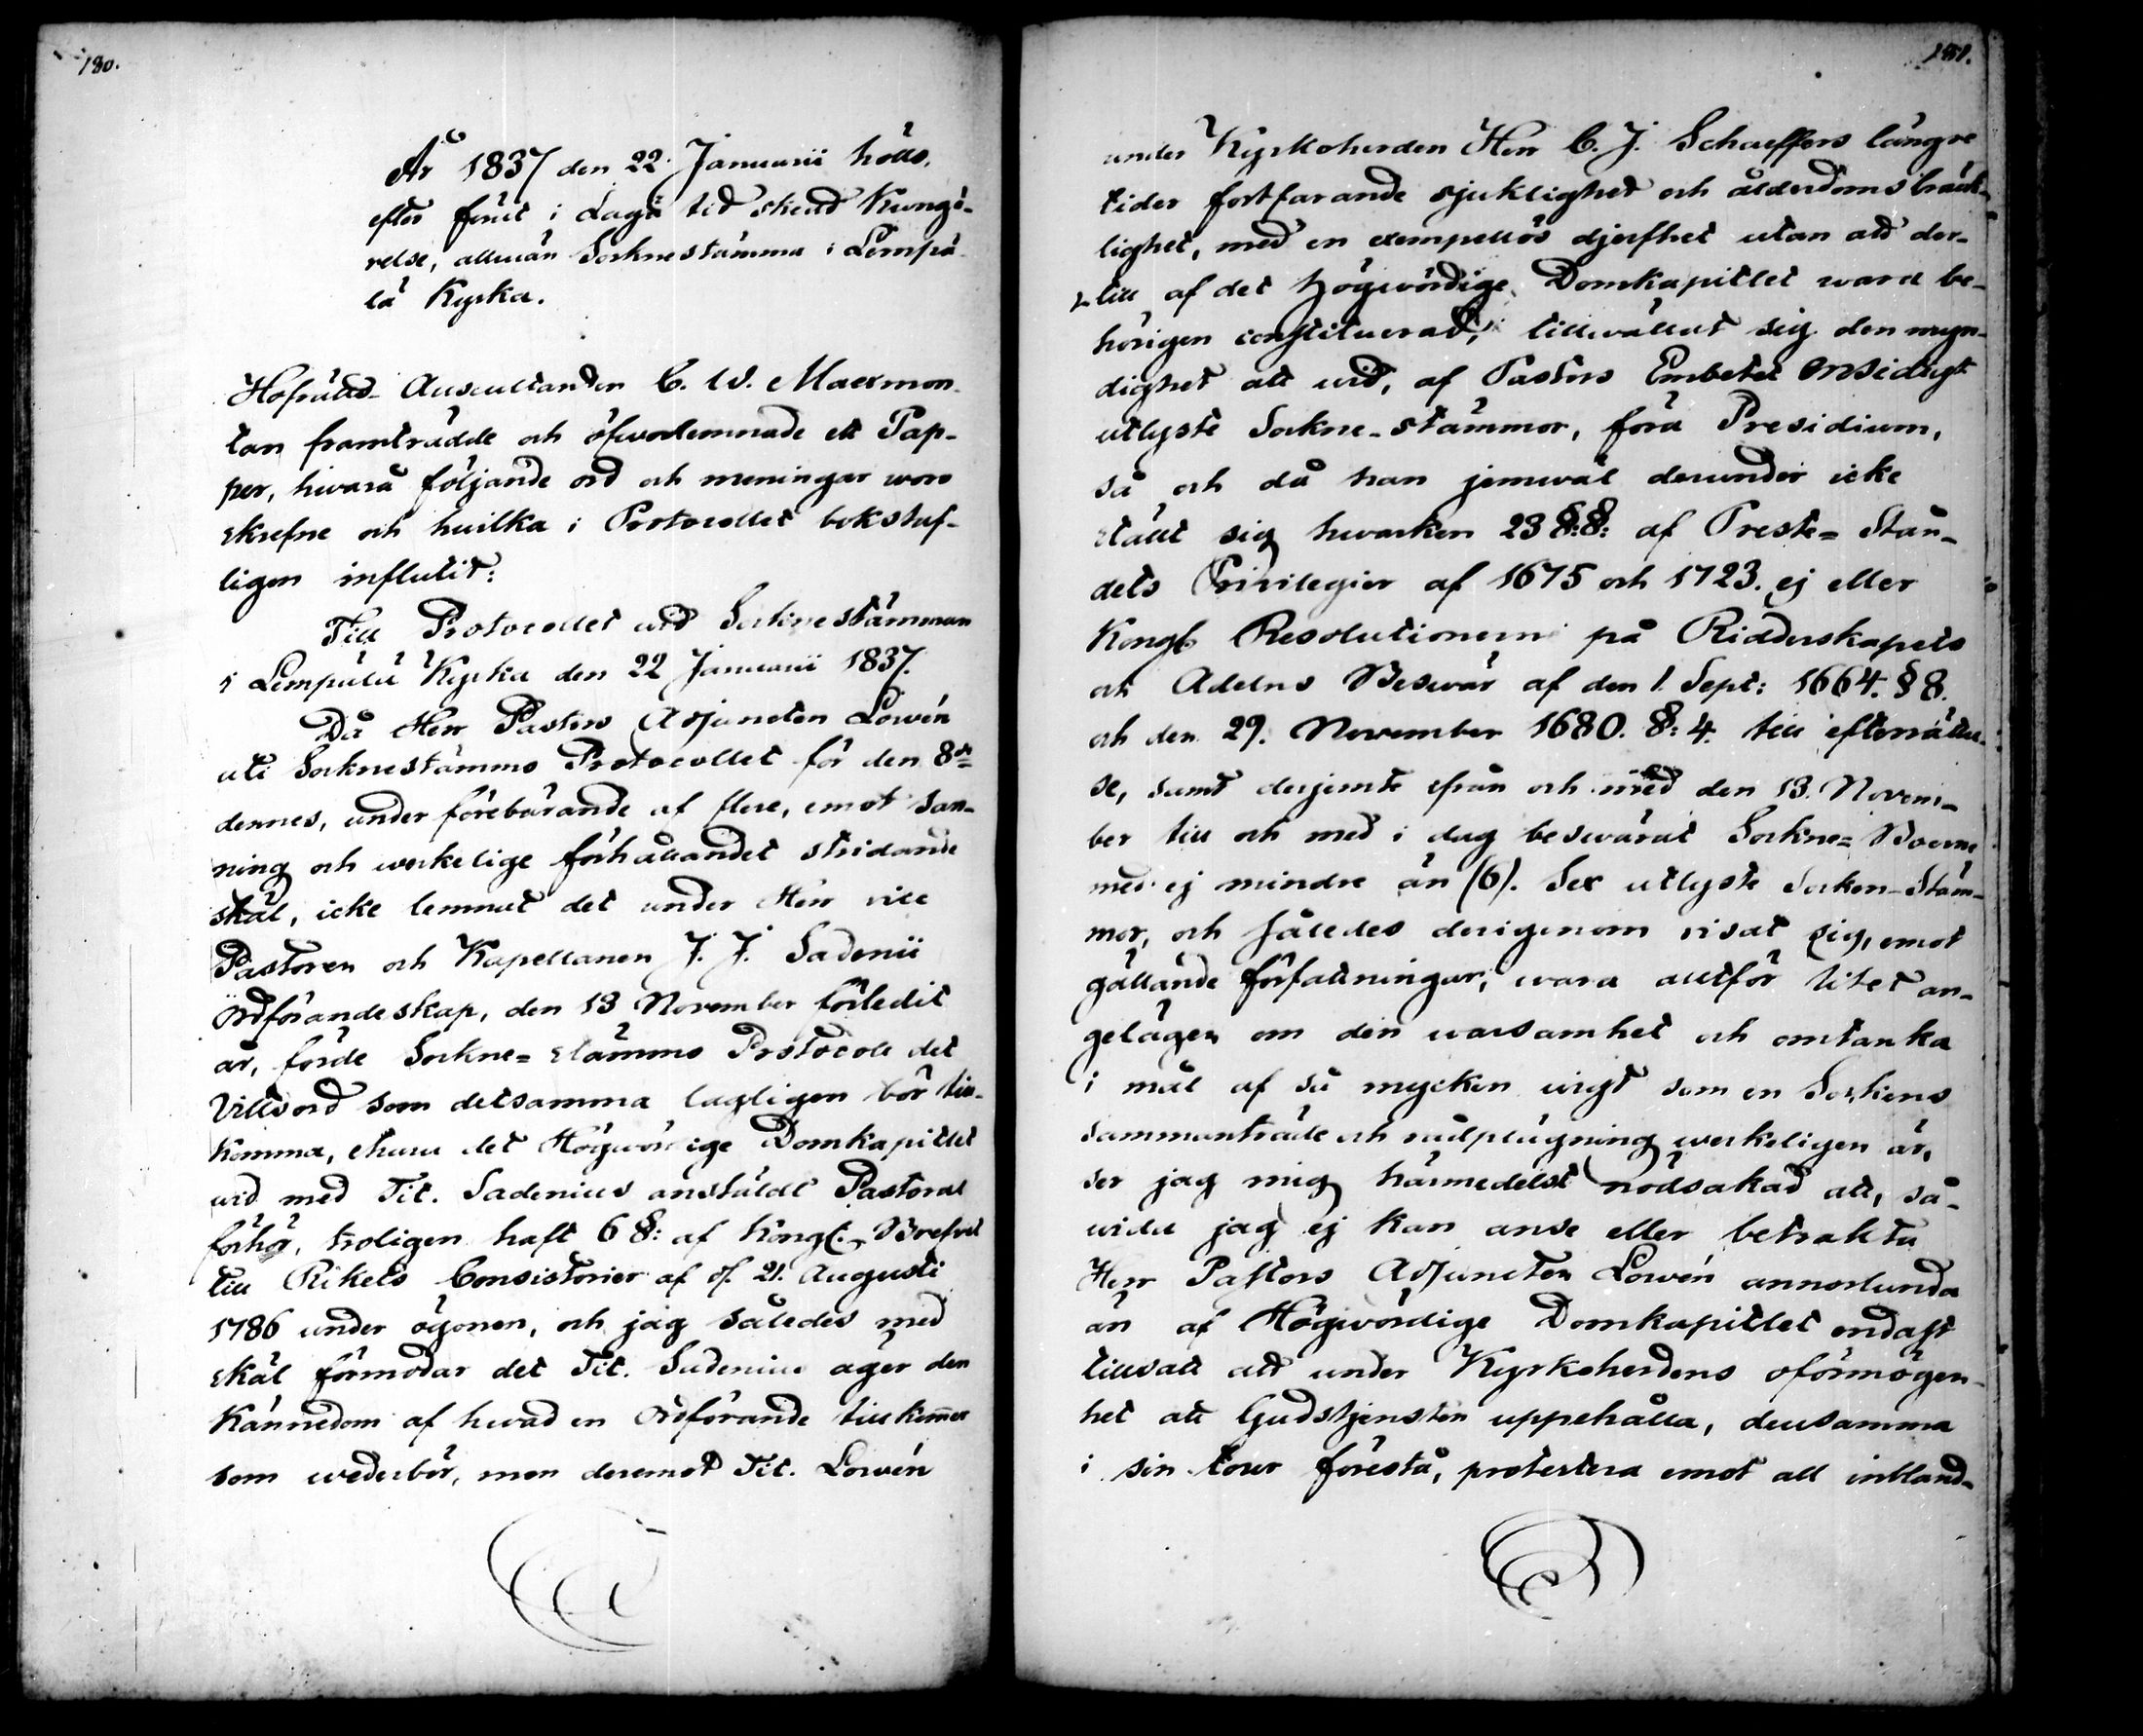 180.
År 1837 den 22 Januarii hölls,
efter förut i Laga tid skedd Kungö-
relse, allmän Sockne stämma i Lempä-
lä Kyrka.
Hofrätts-Auscultanten C. W. Maexmon-
tan framträdde och öfverlemnade ett Pap-
per, hvarå följande ord och meningar woro
skrefne och hvilka i Protocollet bokstaf-
ligen influtit:
Till Protocollet wid Sockne stämman
i Lempälä Kyrka den 22 Januarii 1837.
Då Herr Pastors Adjuncten Lowén
uti Socknestämmo Protocollet för den 8de
dennes, under föreburande af flere, emot san-
ning och werkelige förhållandet stridande
skäl, icke lemnat det under Herr vice
Pastoren och Kapellanen J. J. Sadenii
Ordförandeskap, den 13 November förledit
år, förde Sockne=stämmo Protocoll det
Vittsord som detsamma lagligen bör till-
komma, ehuru det Högwördige Domkapitlet
wid med Tit. Sadenius anstäldt Pastoral
förhör, troligen haft 6 §: af Kongl. Brefvet
till Rikets Consistorier af d. 21. Augusti
1786 under ögonen, och jag således med
skäl förmodar det Tit. Sadenius äger den
Kännedom af hwad en Ordförande tillkommer
som wederbör, men deremot Tit. Lowén
181.
under Kyrkoherden Herr C. J. Schaeffers längre
tider fortfarande sjuklighet och ålderdoms bräck-
lighet, med en exempellös djerfhet utan att der-
till af det Högwördige Domkapitlet ward be-
hörigen constituerad, tillwällat sig den myn-
dighet att wid, af Pastors Embetet ensidigt
utlyste Sockne-stämmor, föra Presidium,
så och då han jemwäl derunder icke
ställt sig hwarken 23 §:§: af Preste=Stån-
dets Privilegier af 1675 och 1723. ej eller
Kongl. Resolutionerne på Ridderskapets
och Adelns Beswär af den 1. Sept: 1664. § 8.
och den 29. November 1680. §: 4. till efterrättel-
se, samt derjemte ifrån och med den 13. Novem-
ber till och med i dag beswärat Sockne=Boerne
med ej mindre än (6). Sex utlyste Socken-Stäm-
mor, och således derigenom visat sig, emot
gällande författningar, wara alltför litet an-
gelägen om den warsamhet och omtanka
i mål af så mycken wigt som en Sockens
sammanträde och rådplägning werkeligen är,
ser jag mig härmedelst nödsakad att, så-
wida jag ej kan anse eller betrakta
Herr Pastors Adjuncten Lowén annorlunda
än af Högwördige Domkapitlet endast
tillsatt att under Kyrkoherdens oförmögen-
het att Gudstjensten uppehålla, densamma
i sin tour förestå, protestera emot all inbland-